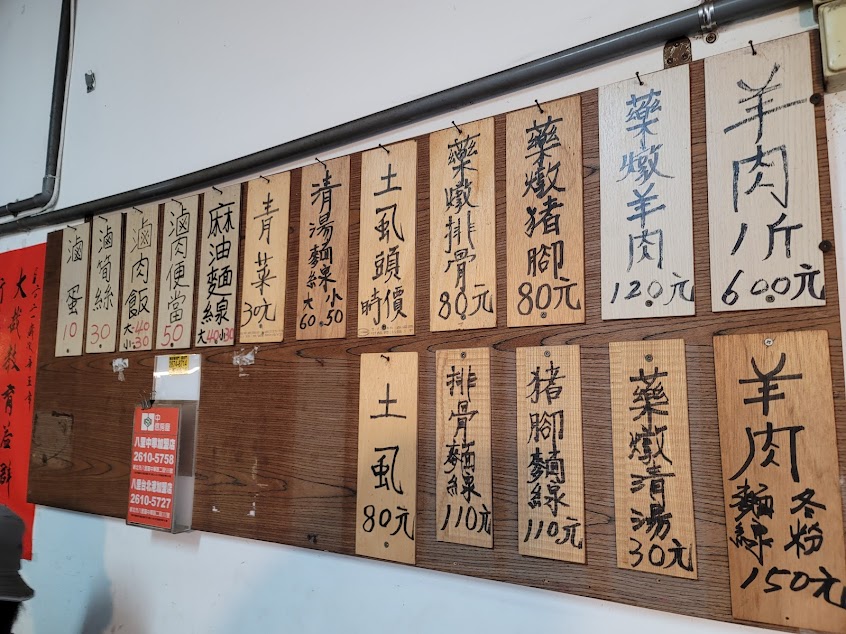 羊肉1斤600元
藥燉羊肉120元
藥燉猪腳80元
藥燉排骨80元
土虱頭時價
清湯麵線大60小50
青菜30元
麻油麵線大40小30
滷肉便當50
滷肉飯大40小30
滷筍絲30
滷蛋10
羊肉麵線冬粉150元
藥燉清湯30元
猪腳麵線110元
排骨麵線110元
土虱80元
八里中華加盟店
2610-5758
八里台北港加盟店
2610-5727
大哉教育益群